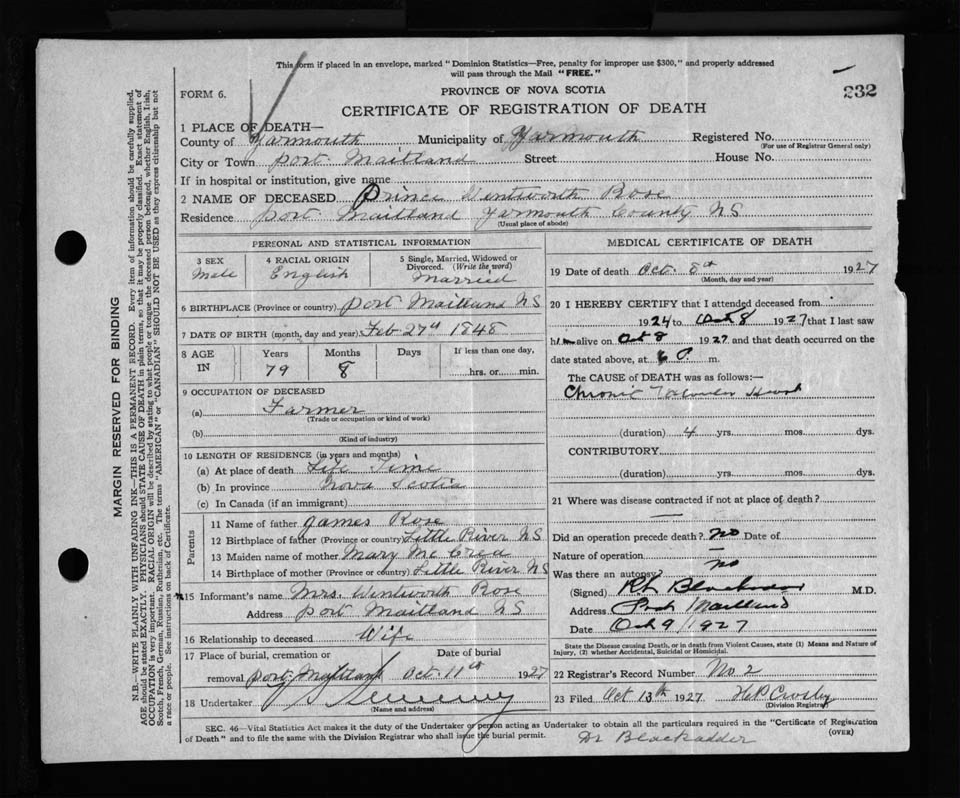 This form if placed in an envelope, marked "Dominion Statistics—Free, penalty for improper use $300," and properly addressed
will pass through the Mail "FREE."
232
FORM 6.
PROVINCE OF NOVA SCOTIA
CERTIFICATE OF REGISTRATION OF DEATH
1 PLACE OF DEATH—
County of Yarmouth Municipality of Yarmouth Registered No.
(For use of Registrar General only)
City or Town Port Maitland Street House No.
If in hospital or institution, give name
2 NAME OF DECEASED Prince Wentworth Rose
Residence Port Maitland Yarmouth County NS
(Usual place of abode)
PERSONAL AND STATISTICAL INFORMATION
3 SEX 4 RACIAL ORIGIN 5 Single, Married, Widowed or
Divorced. (Write the word)
Male English Married
6 BIRTHPLACE (Province or country) Port Maitland NS
7 DATE OF BIRTH (month, day and year) Feb 27th 1848
8 AGE IN Years Months Days If less than one day,
79 8 hrs. or min.
9 OCCUPATION OF DECEASED
(a) Farmer
(Trade or occupation or kind of work)
(b)
(Kind of industry)
10 LENGTH OF RESIDENCE (in years and months)
(a) At place of death Life Time
(b) In province Nova Scotia
(c) In Canada (if an immigrant)
Parents
11 Name of father James Rose
12 Birthplace of father (Province or country) Little River NS
13 Maiden name of mother Mary
14 Birthplace of mother (Province or country) Little River NS
15 Informant's name Mrs. Wentworth Rose
Address Port Maitland NS
16 Relationship to deceased Wife
17 Place of burial, cremation or Date of burial
removal Port Maitland Oct. 11th 1927
18 Undertaker
(Name and address)
MEDICAL CERTIFICATE OF DEATH
19 Date of death Oct. 8th 1927
(Month, day and year)
20 I HEREBY CERTIFY that I attended deceased from
1924 to Oct 8 1927 that I last saw
him alive on Oct 8 1927 and that death occurred on the
date stated above, at 6 P. m.
The CAUSE of DEATH was as follows:—
Chronic Heart
(duration) 4 yrs. mos. dys.
CONTRIBUTORY
(duration) yrs. mos. dys.
21 Where was disease contracted if not at place of death?
—
Did an operation precede death? No Date of
Nature of operation —
Was there an autopsy? No
(Signed) Blackadar M.D.
Address Port Maitland
Date Oct 9/1927
State the Disease causing Death, or in death from Violent Causes, state (1) Means and Nature of
Injury, (2) whether Accidental, Suicidal or Homicidal.
22 Registrar's Record Number No 2
23 Filed Oct 13th 1927 H.P. Crosby
(Division Registrar)
SEC. 46—Vital Statistics Act makes it the duty of the Undertaker or person acting as Undertaker to obtain all the particulars required in the "Certificate of Registration
of Death" and to file the same with the Division Registrar who shall issue the burial permit.
(OVER)
Dr Blackadder
MARGIN RESERVED FOR BINDING
N.B.—WRITE PLAINLY WITH UNFADING INK—THIS IS A PERMANENT RECORD. Every item of information should be carefully supplied.
AGE should be stated EXACTLY. PHYSICIANS should STATE CAUSE OF DEATH in plain terms, so that it may be properly classified. Exact statement of
OCCUPATION is very important. RACIAL ORIGIN will be described by stating to what people or tongue the deceased person belonged, whether English, Irish,
Scotch, French, German, Russian, Ruthenian, etc. The terms "AMERICAN" or "CANADIAN" SHOULD NOT BE USED as they express citizenship but not
a race or people. See instructions on back of Certificate.